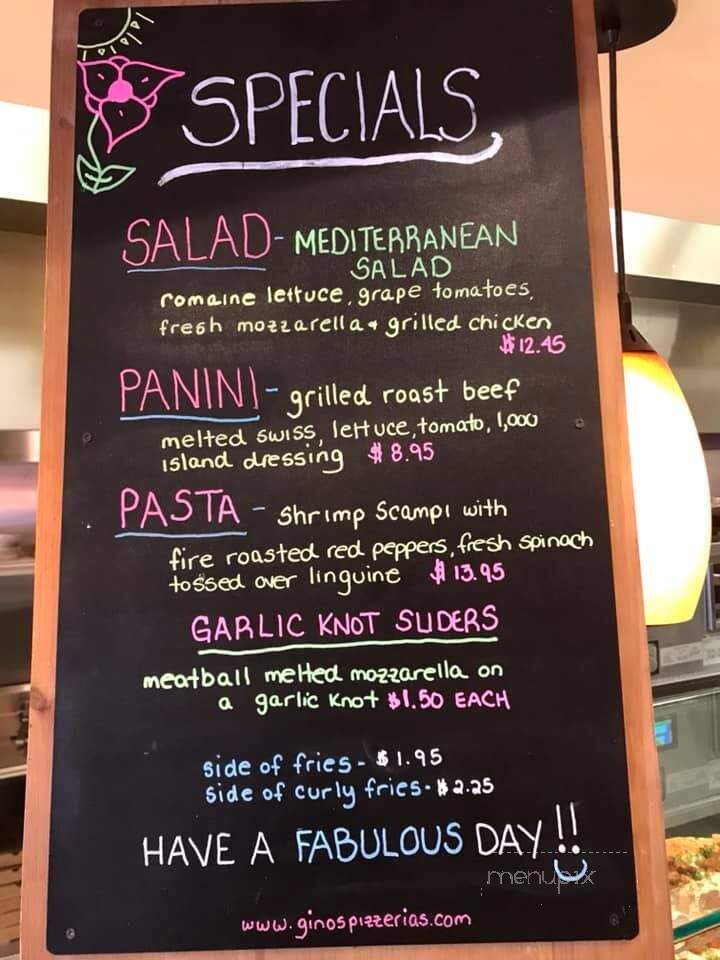 SPECIALS
SALAD - MEDITERRANEAN
SALAD
romaine lettuce, grape tomatoes,
fresh mozzarella & grilled chicken
$12.45
PANINI - grilled roast beef
melted swiss, lettuce, tomato, 1,000
island dressing $8.95
PASTA - Shrimp Scampi with
fire roasted red peppers, fresh spinach
tossed over linguine $13.95
GARLIC KNOT SLIDERS
meatball melted mozzarella on
a garlic knot $1.50 EACH
side of fries - $1.95
side of curly fries - $2.25
HAVE A FABULOUS DAY!!
menupix
www.ginospizzerias.com